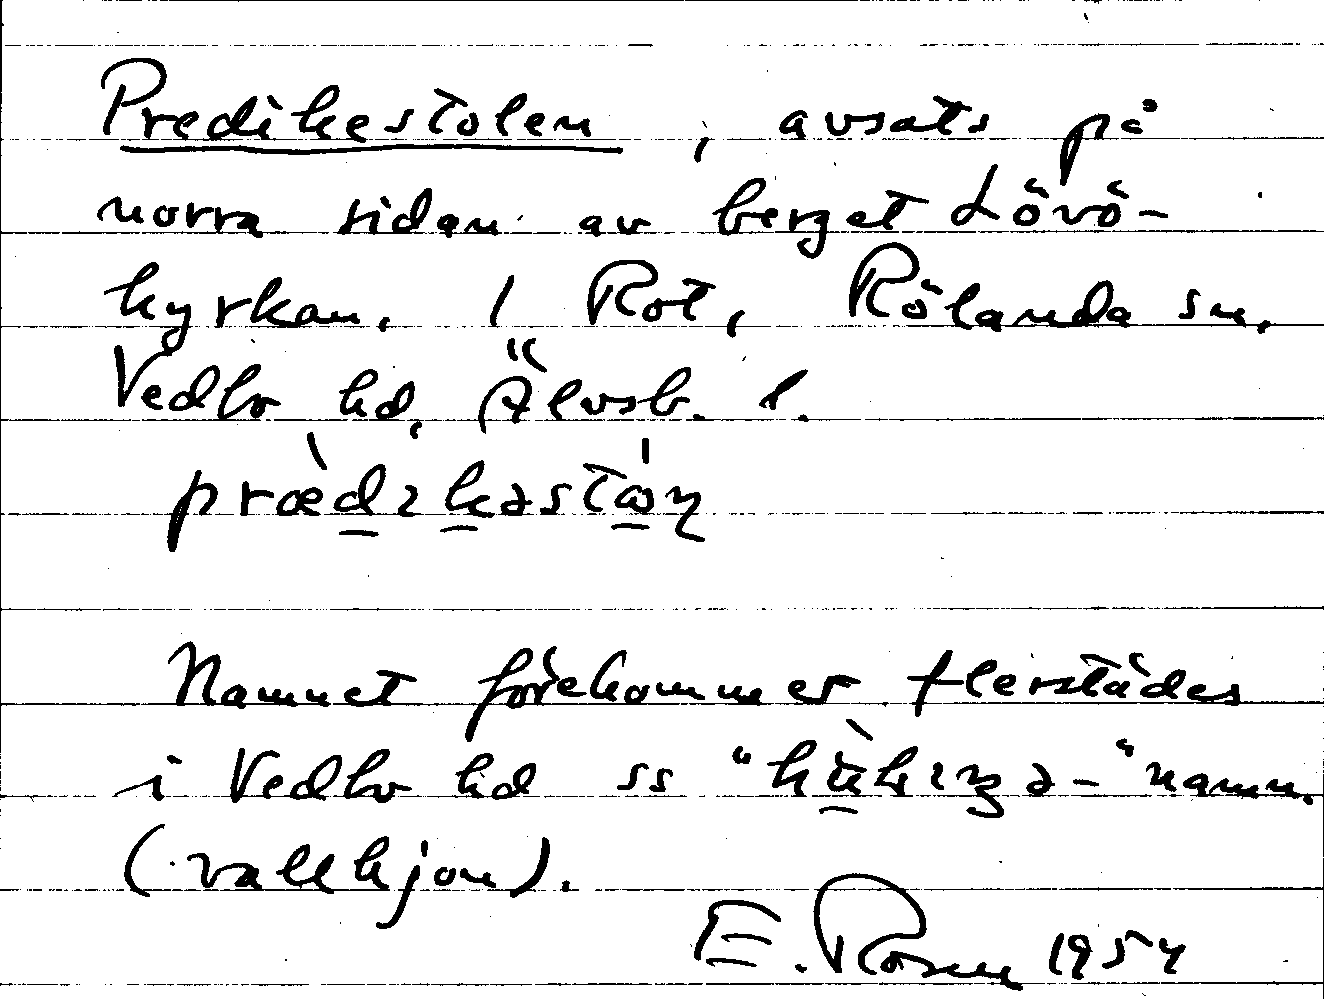 Predikestolen, avsats på
norra sidan av berget Lövö-
kyrkan. 1 Rot, Rölanda sn,
Vedbo hd, Älvsb. l.
Namnet förekommer flerstädes
i Vedbo hd ss "
(vallhjon).
E. Rosen 1954